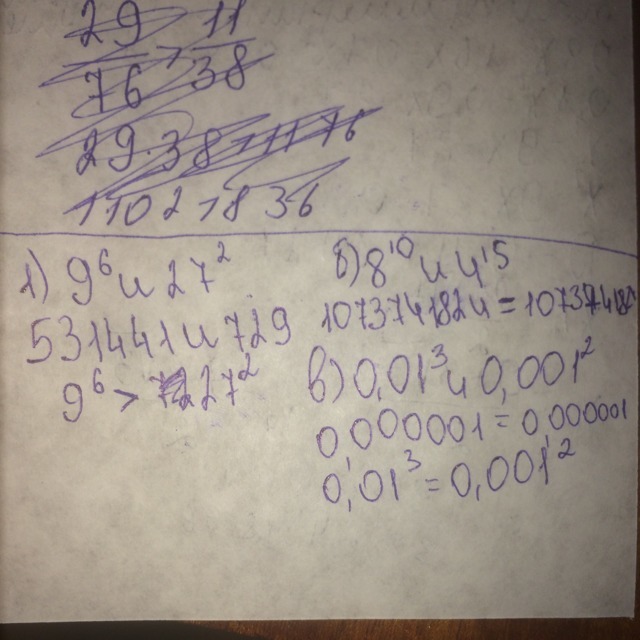 29 > 11
76 38
29·38 11·76
1102 > 836
1) 9⁶ и 27²
531441 и 729
9⁶ > 27²
б) 8¹⁰ и 4¹⁵
1073741824 = 107374182
в) 0,01³ и 0,001²
0,000001 = 0,000001
0,01³ = 0,001²